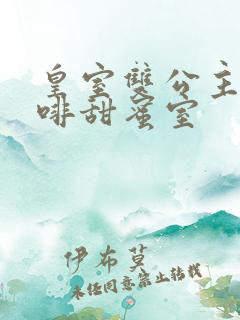 皇室雙公主
啡甜蜜室
伊布莫
未经同意禁止转载